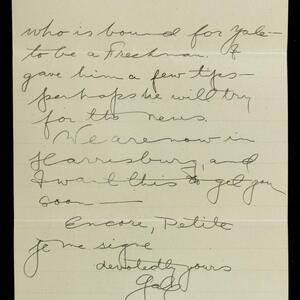 who is bound for Yale—
to be a Freshman. I
gave him a few tips—
perhaps he will try
for the news.
We are now in
Harrisburg, and
I want this to get you
soon—
Encore, Petite
Je me signe
devotedly yours